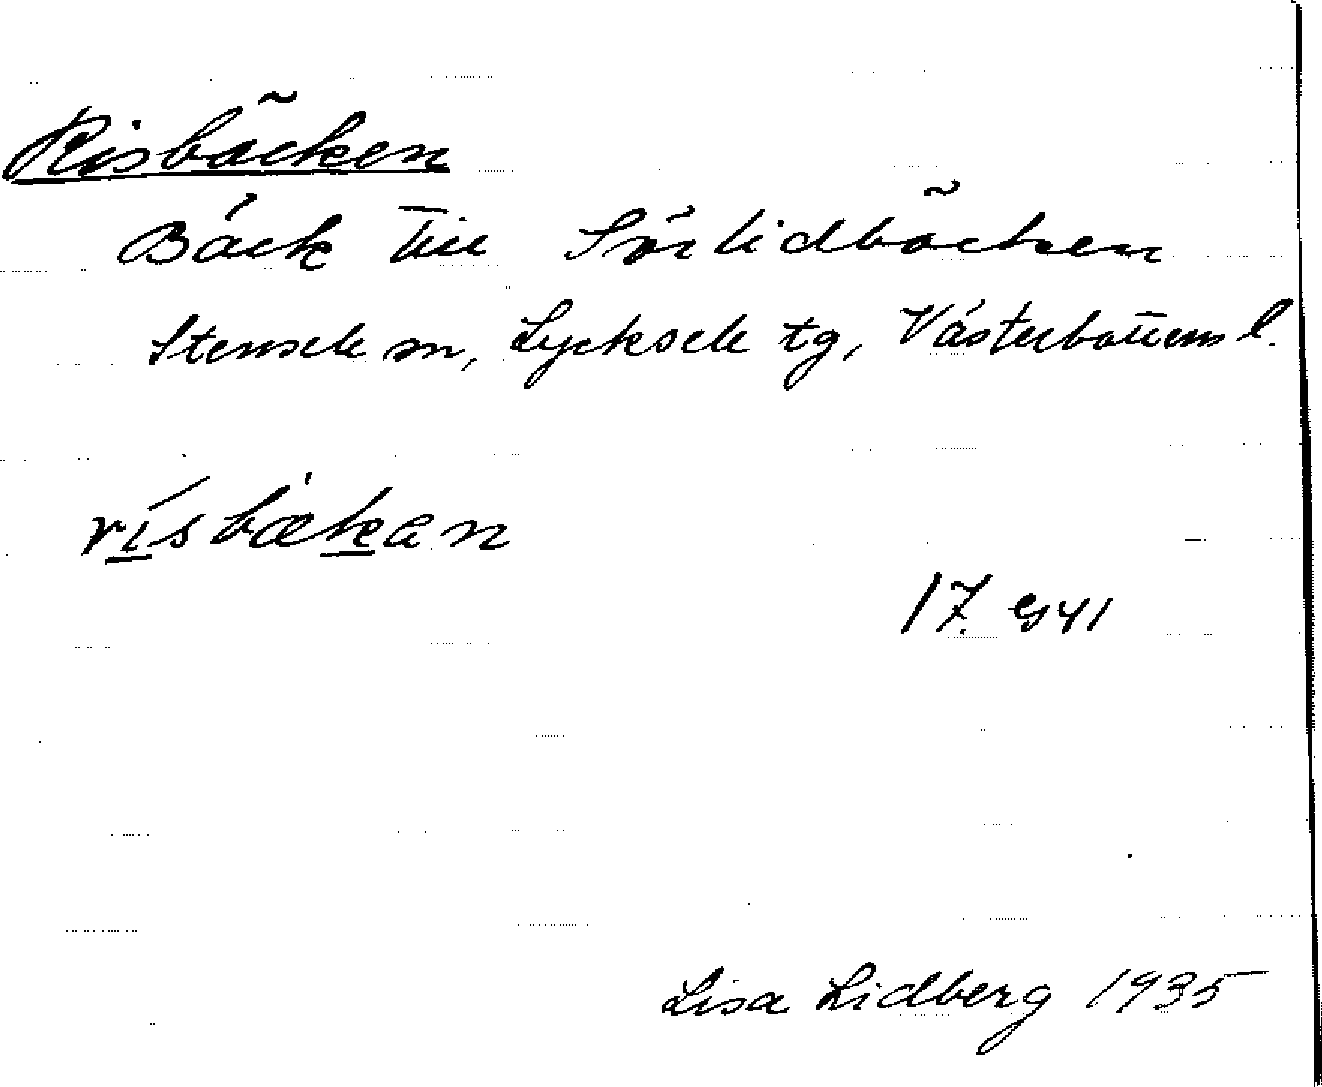 Risbäcken
Bäck till Sörlidbäcken
Stensele sn, Lycksele tg, Västerbottens l.
rísbækan
17.
Lisa Lidberg 1935